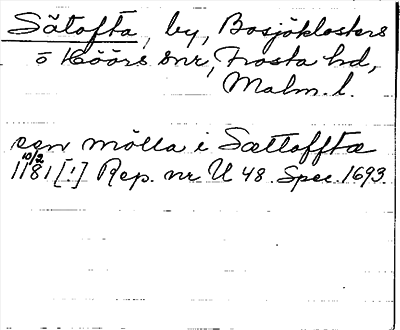 Sätofta, by, Bosjöklosters
o Höörs snr, Frosta hd,
Malm. l.
een mölla i Sættofftæ
10/2 1181 [!] Rep. nr U 48. Spec. 1693.